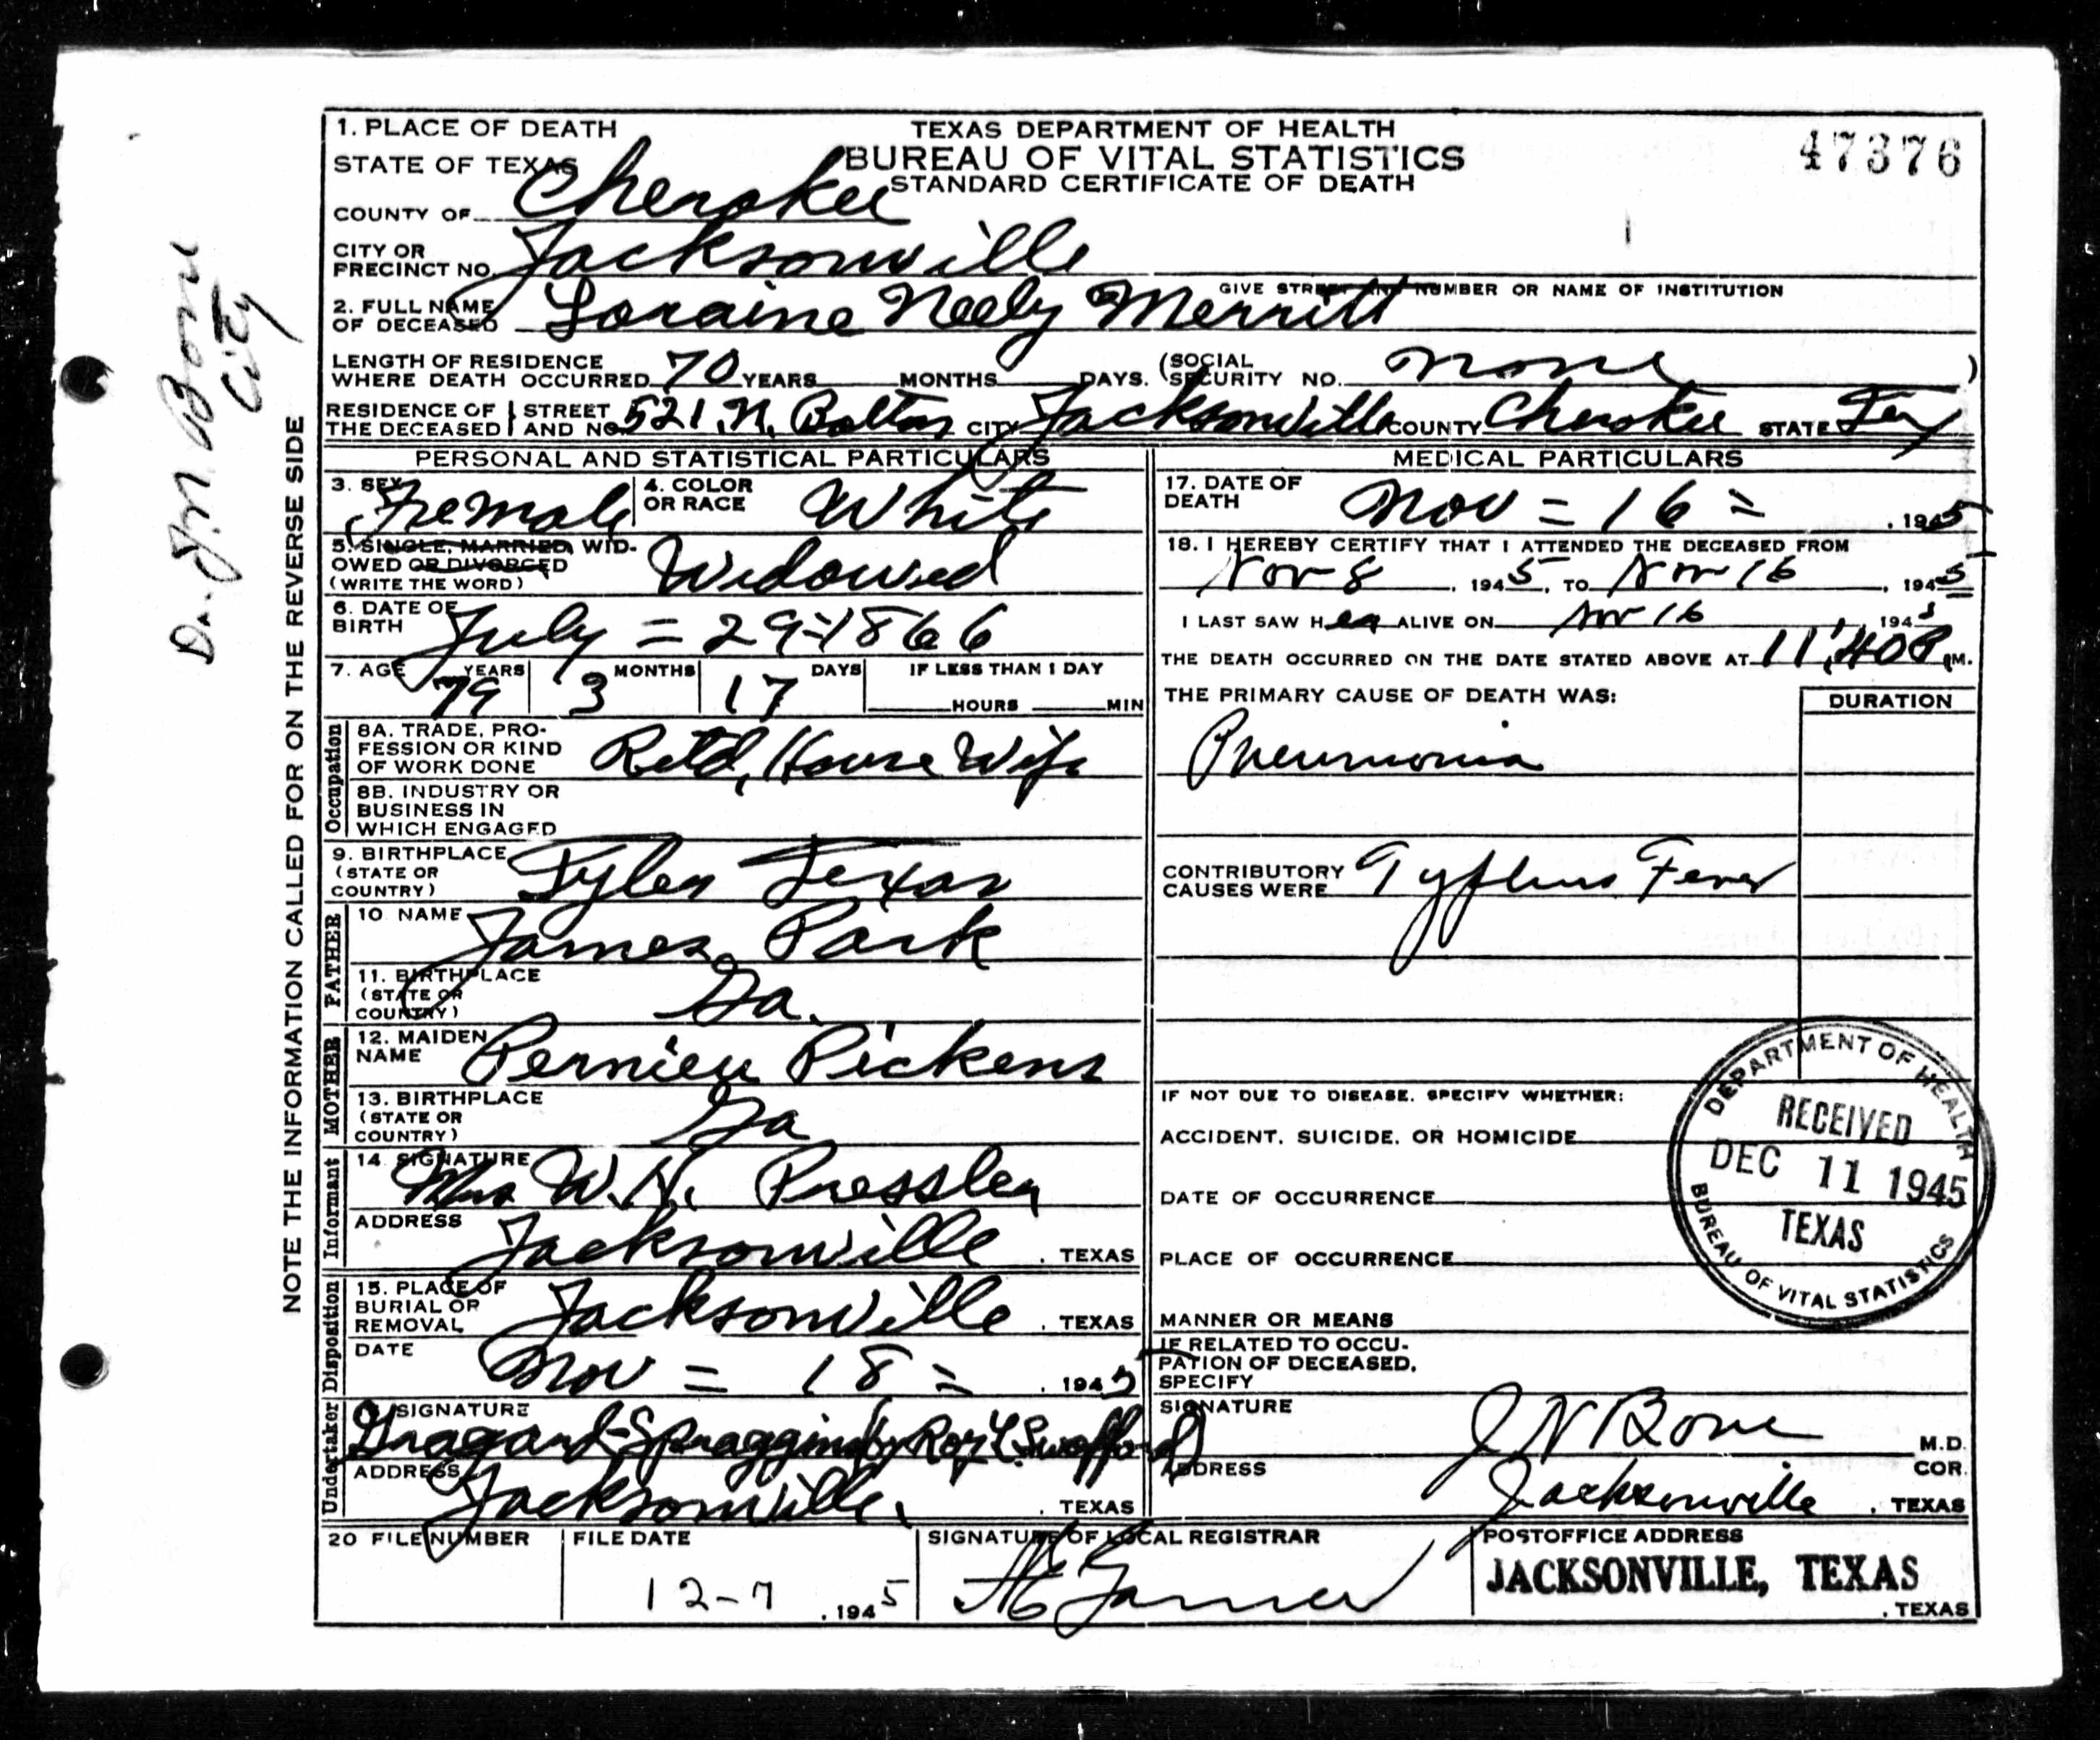 1. PLACE OF DEATH
TEXAS DEPARTMENT OF HEALTH
BUREAU OF VITAL STATISTICS
STANDARD CERTIFICATE OF DEATH
47376
STATE OF TEXAS
COUNTY OF Cherokee
CITY OR PRECINCT NO. Jacksonville
GIVE STREET AND NUMBER OR NAME OF INSTITUTION
2. FULL NAME OF DECEASED Loraine Neely Merritt
LENGTH OF RESIDENCE WHERE DEATH OCCURRED 70 YEARS MONTHS DAYS. (SOCIAL SECURITY NO. none )
RESIDENCE OF THE DECEASED STREET AND NO. 521 N. Bolton CITY Jacksonville COUNTY Cherokee STATE Tex
PERSONAL AND STATISTICAL PARTICULARS
3. SEX Female 4. COLOR OR RACE White
5. SINGLE, MARRIED, WIDOWED OR DIVORCED (WRITE THE WORD) Widowed
6. DATE OF BIRTH July = 29-1866
7. AGE YEARS 79 MONTHS 3 DAYS 17 IF LESS THAN 1 DAY HOURS MIN
Occupation
8A. TRADE, PROFESSION OR KIND OF WORK DONE Retd, House Wife
8B. INDUSTRY OR BUSINESS IN WHICH ENGAGED
9. BIRTHPLACE (STATE OR COUNTRY) Tyler Texas
FATHER
10 NAME James Park
11. BIRTHPLACE (STATE OR COUNTRY) Ga.
MOTHER
12. MAIDEN NAME Pickens
13. BIRTHPLACE (STATE OR COUNTRY) Ga
Informant
14 SIGNATURE Mrs W.H. Pressley
ADDRESS Jacksonville , TEXAS
Disposition
15. PLACE OF BURIAL OR REMOVAL Jacksonville , TEXAS
DATE Nov = 18 = , 1945
Undertaker
SIGNATURE Gragard-Spraggins by Roy L. Swofford
ADDRESS Jacksonville. , TEXAS
MEDICAL PARTICULARS
17. DATE OF DEATH Nov = 16 = , 1945
18. I HEREBY CERTIFY THAT I ATTENDED THE DECEASED FROM
Nov 8 , 1945, TO Nov 16 , 1945
I LAST SAW HER ALIVE ON Nov 16 , 1945
THE DEATH OCCURRED ON THE DATE STATED ABOVE AT 11:40 P.M.
THE PRIMARY CAUSE OF DEATH WAS: DURATION
Pneumonia
CONTRIBUTORY CAUSES WERE Tyfhus Fever
IF NOT DUE TO DISEASE, SPECIFY WHETHER:
ACCIDENT, SUICIDE, OR HOMICIDE
DATE OF OCCURRENCE
PLACE OF OCCURRENCE
MANNER OR MEANS
IF RELATED TO OCCUPATION OF DECEASED, SPECIFY
SIGNATURE J N Bone M.D. COR.
ADDRESS Jacksonville , TEXAS
DEPARTMENT OF HEALTH
RECEIVED
DEC 11 1945
TEXAS
BUREAU OF VITAL STATISTICS
20 FILE NUMBER
FILE DATE 12-7 , 1945
SIGNATURE OF LOCAL REGISTRAR
POSTOFFICE ADDRESS
JACKSONVILLE, TEXAS
, TEXAS
NOTE THE INFORMATION CALLED FOR ON THE REVERSE SIDE
Dr. J.N Bone
City